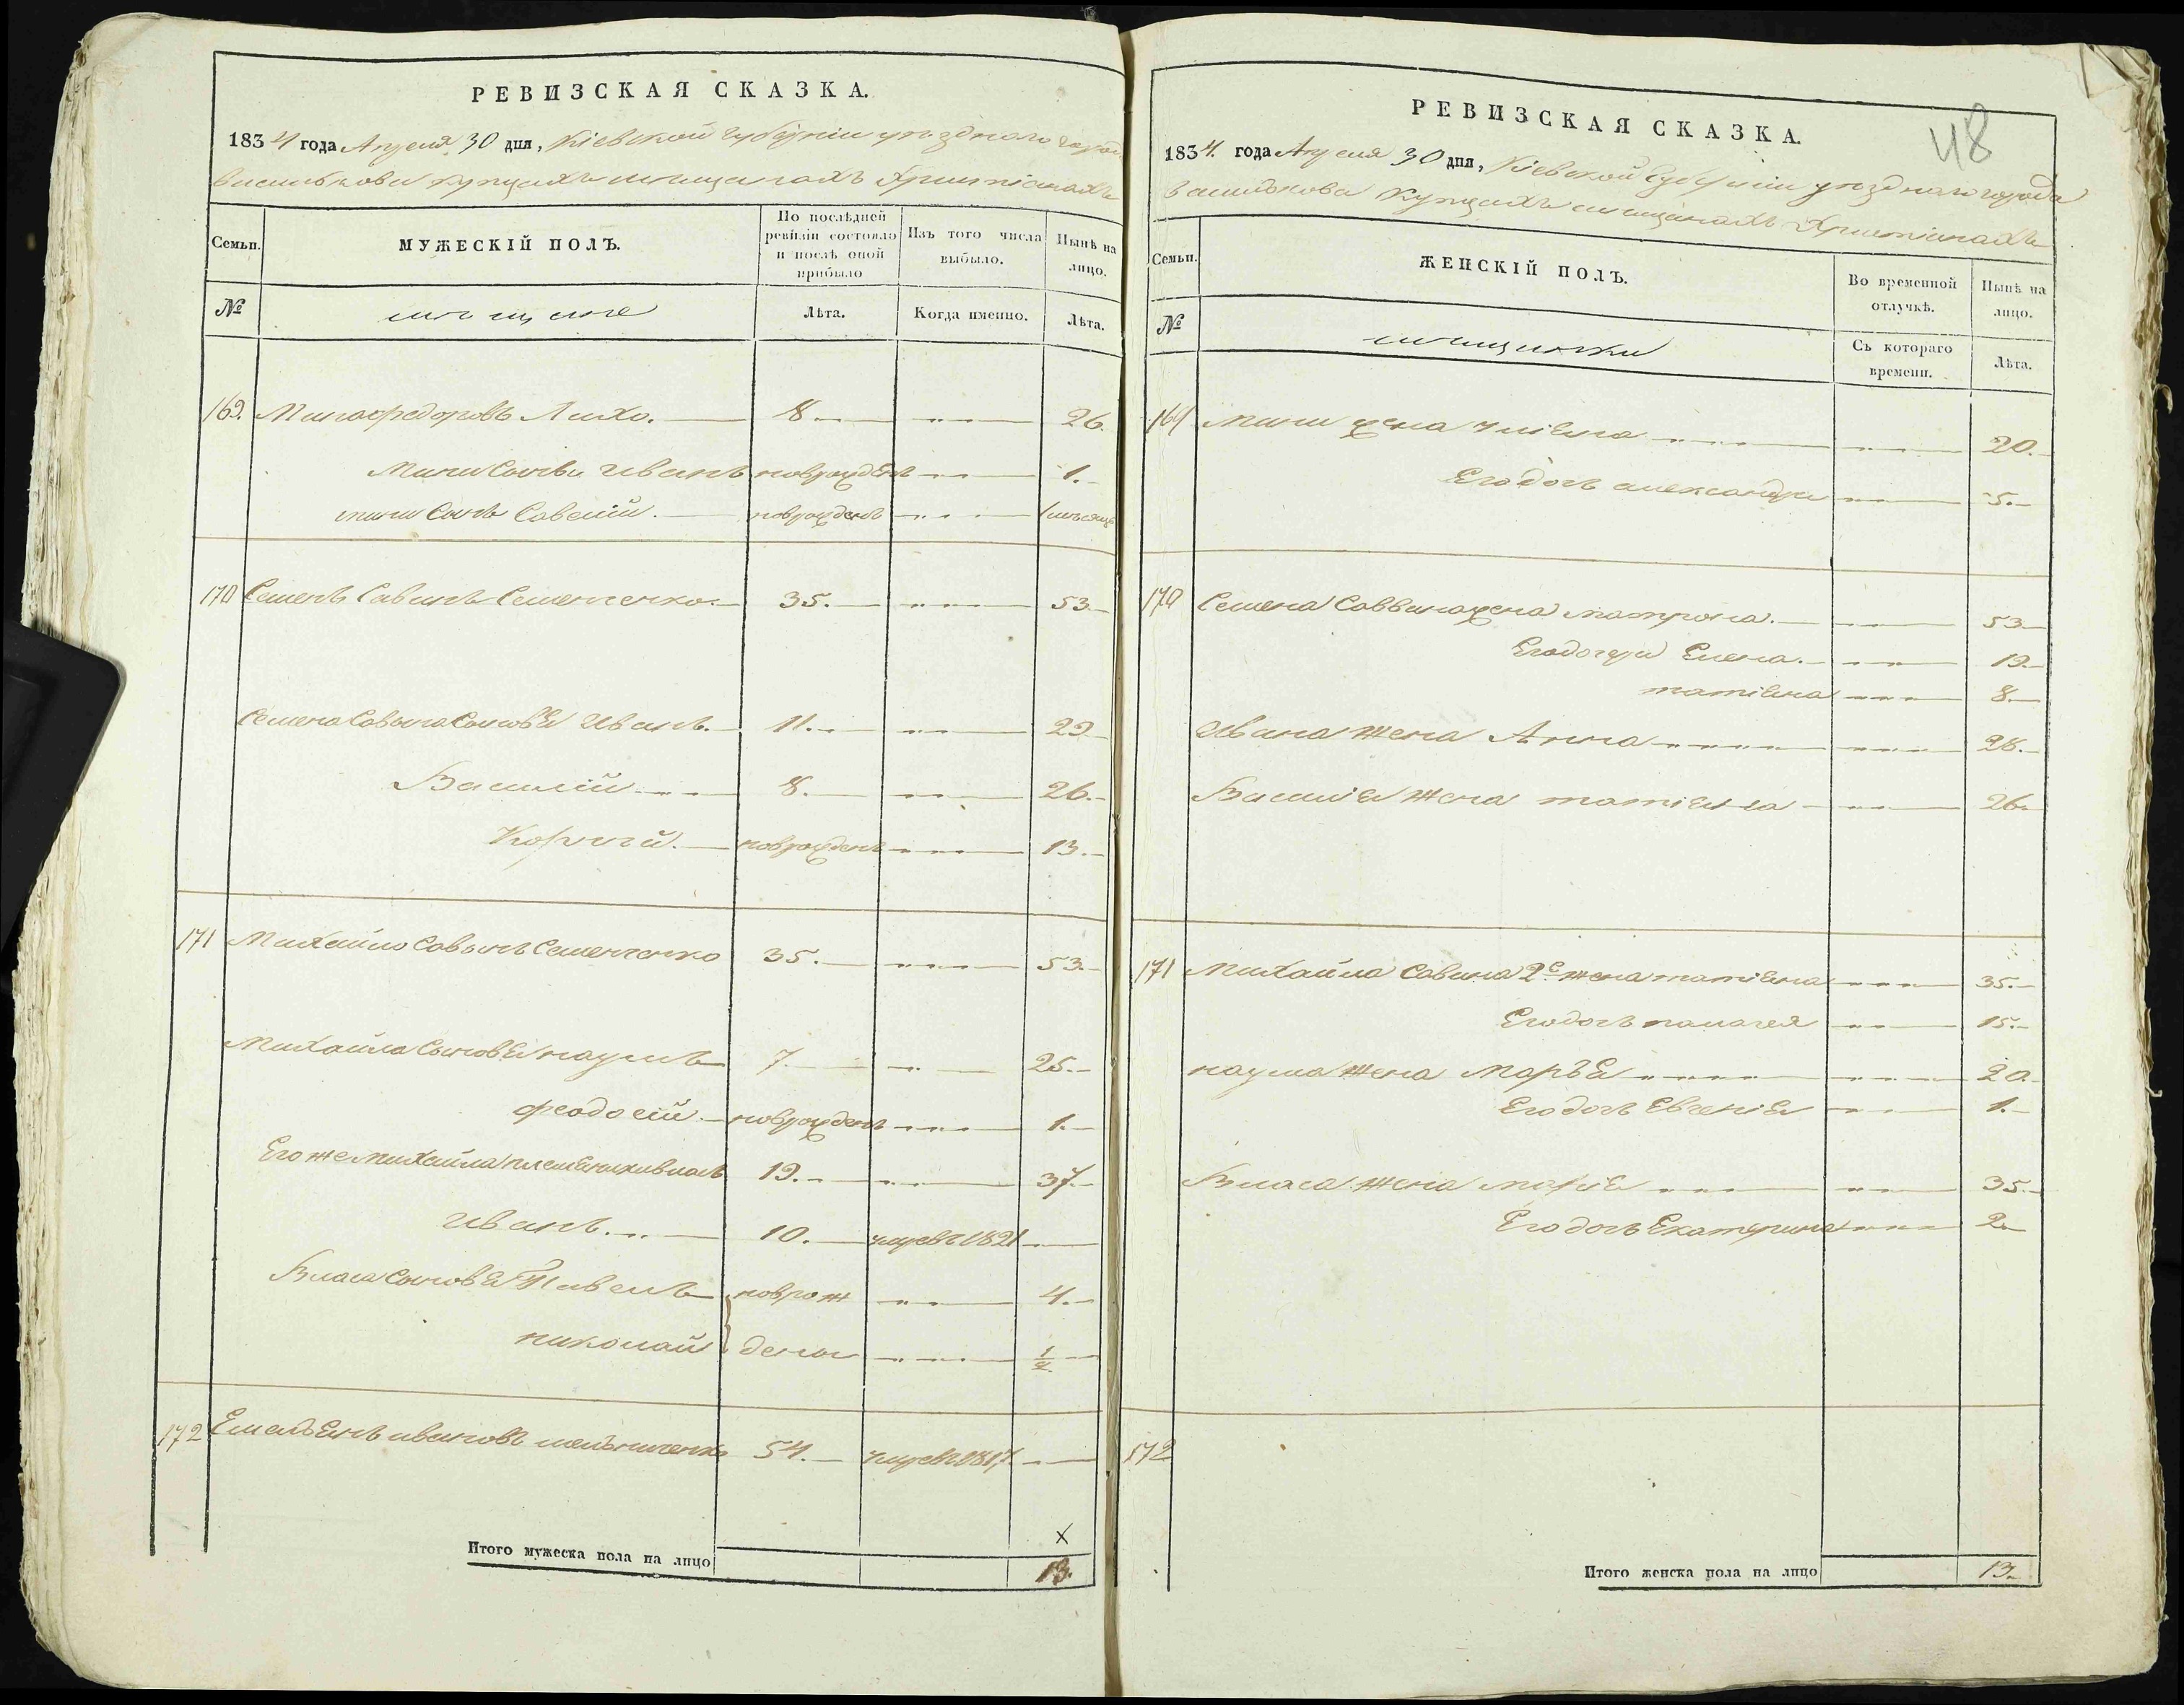 РЕВИЗСКАЯ СКАЗКА.
1834 года Апреля 30 дня, Кіевской губерніи уѣзднаго города
Василькова купцахъ мещанахъ христіанахъ
Семьи.
МУЖЕСКІЙ ПОЛЪ.
По послѣдней ревизіи состояло и послѣ оной прибыло
Изъ того числа выбыло.
Нынѣ на лицо.
№
мещане
Лѣта.
Когда именно.
Лѣта.
169. Мина Федоровъ Лихо. 8 26.
Мины Сынъ Иванъ новрожденъ 1.
мины Сынъ Савелій. новрожденъ 1 месяцъ
170 Семенъ Савинъ Семенченко 35. 53
Семена Савина Сыновья Иванъ. 11. 29
Василій 8. 26.
Корній. новрожденъ 13.
171 Михайло Савинъ Семенченко 35. 53.
Михайла Сыновья наумъ 7. 25.
феодосій. новрожденъ 1.
Его же михайла племянники власъ 19. 37.
иванъ. 10. умре въ 1821
Власа Сыновья Павелъ новрож 4.
николай дены 1/2
172 Емельянъ ивановъ мельниченко 54. умре въ 1817.
Итого мужеска пола на лицо
x
13.
48
РЕВИЗСКАЯ СКАЗКА.
1834. года Апреля 30 дня, Кіевской Губерніи уѣзднаго города
Василькова Купцахъ мещанахъ Христіанахъ
Семьи.
ЖЕНСКІЙ ПОЛЪ.
Во временной отлучкѣ.
Нынѣ на лицо.
№
мещанки
Съ котораго времени.
Лѣта.
169 мины жена 20.
Его дочь александра 5.
170 Семена Саввина жена матрона. 53
Его дочери Елена. 19.
татіяна 8.
Ивана жена Анна 28.
Василія жена татіяна 26.
171 Михайла Савина 2я жена татіяна 35.
Его дочь палагея 15.
наума жена Марья 20.
Его дочь Евгенія 1.
Власа жена марія 35.
Его дочь Екатерина 2.
172
Итого женска пола на лицо 13.